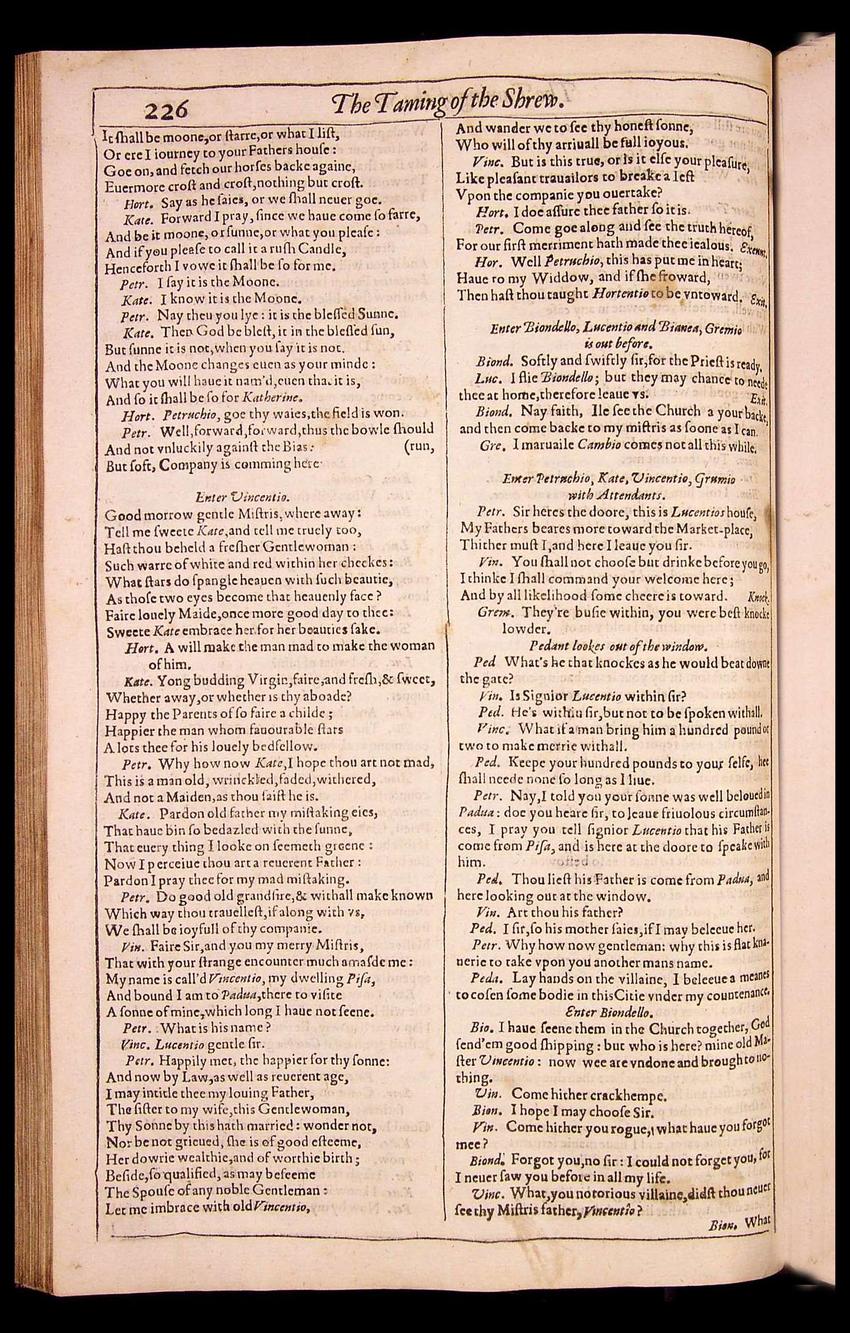 226
The Taming of the Shrew.
It ſhall be moone,or ſtarre,or what I liſt,
Or ere I iourney to your Fathers houſe :
Goe on, and fetch our horſes backe againe,
Euermore croſt and croſt,nothing but croſt.
Hort. Say as he ſaies, or we ſhall neuer goe.
Kate. Forward I pray, ſince we haue come ſo farre,
And be it moone, or ſunne,or what you pleaſe :
And if you pleaſe to call it a ruſh Candle,
Henceforth I vowe it ſhall be ſo for me.
Petr. I ſay it is the Moone.
Kate. I know it is the Moone.
Petr. Nay then you lye : it is the bleſſed Sunne.
Kate. Then God be bleſt, it in the bleſſed ſun,
But ſunne it is not,when you ſay it is not.
And the Moone changes euen as your minde :
What you will haue it nam'd,euen that it is,
And ſo it ſhall be ſo for Katherine.
Hort. Petruchio, goe thy waies,the field is won.
Petr. Well,forward,forward,thus the bowle ſhould
And not vnluckily againſt the Bias: (run,
But ſoft, Company is comming here
Enter Vincentio.
Good morrow gentle Miſtris, where away :
Tell me ſweete Kate,and tell me truely too,
Haſt thou beheld a freſher Gentlewoman :
Such warre of white and red within her cheekes :
What ſtars do ſpangle heauen with ſuch beautie,
As thoſe two eyes become that heauenly face ?
Faire louely Maide,once more good day to thee :
Sweete Kate embrace her for her beauties ſake.
Hort. A will make the man mad to make the woman
of him.
Kate. Yong budding Virgin,faire,and freſh,& ſweet,
Whether away,or whether is thy aboade?
Happy the Parents of ſo faire a childe ;
Happier the man whom fauourable ſtars
A lots thee for his louely bedfellow.
Petr. Why how now Kate,I hope thou art not mad,
This is a man old, wrinckled,faded,withered,
And not a Maiden,as thou ſaiſt he is.
Kate. Pardon old father my miſtaking eies,
That haue bin ſo bedazled with the ſunne,
That euery thing I looke on ſeemeth greene :
Now I perceiue thou art a reuerent Father :
Pardon I pray thee for my mad miſtaking.
Petr. Do good old grandſire,& withall make known
Which way thou trauelleſt,if along with vs,
We ſhall be ioyfull of thy companie.
Vin. Faire Sir,and you my merry Miſtris,
That with your ſtrange encounter much amaſde me :
My name is call'd Vincentio, my dwelling Piſa,
And bound I am to Padua,there to viſite
A ſonne of mine,which long I haue not ſeene.
Petr. What is his name ?
Vinc. Lucentio gentle ſir.
Petr. Happily met, the happier for thy ſonne:
And now by Law,as well as reuerent age,
I may intitle thee my louing Father,
The ſiſter to my wife,this Gentlewoman,
Thy Sonne by this hath married : wonder not,
Nor be not grieued, ſhe is of good eſteeme,
Her dowrie wealthie,and of worthie birth ;
Beſide,ſo qualified, as may beſeeme
The Spouſe of any noble Gentleman :
Let me imbrace with old Vincentio,
And wander we to ſee thy honeſt ſonne,
Who will of thy arriuall be full ioyous.
Vinc. But is this true, or is it elſe your pleaſure,
Like pleaſant trauailors to breake a Ieſt
Vpon the companie you ouertake?
Hort. I doe aſſure thee father ſo it is.
Petr. Come goe along and ſee the truth hereof,
For our firſt merriment hath made thee iealous. Exeunt.
Hor. Well Petruchio, this has put me in heart;
Haue to my Widdow, and if ſhe froward,
Then haſt thou taught Hortentio to be vntoward. Exit.
Enter Biondello, Lucentio and Bianea, Gremio
is out before.
Biond. Softly and ſwiftly ſir,for the Prieſt is ready.
Luc. I flie Biondello; but they may chance to neede
thee at home,therefore leaue vs. Exit.
Biond. Nay faith, Ile ſee the Church a your backe,
and then come backe to my miſtris as ſoone as I can.
Gre. I maruaile Cambio comes not all this while.
Enter Petruchio, Kate, Vincentio, Grumio
with Attendants.
Petr. Sir heres the doore, this is Lucentios houſe,
My Fathers beares more toward the Market-place,
Thither muſt I,and here I leaue you ſir.
Vin. You ſhall not chooſe but drinke before you go,
I thinke I ſhall command your welcome here;
And by all likelihood ſome cheere is toward. Knock.
Grem. They're buſie within, you were beſt knocke
lowder.
Pedant lookes out of the window.
Ped What's he that knockes as he would beat downe
the gate?
Vin. Is Signior Lucentio within ſir?
Ped. He's within ſir,but not to be ſpoken withall.
Vinc. What if a man bring him a hundred pound or
two to make merrie withall.
Ped. Keepe your hundred pounds to your ſelfe, hee
ſhall neede none ſo long as I liue.
Petr. Nay,I told you your ſonne was well beloued in
Padua : doe you heare ſir, to leaue friuolous circumſtan-
ces, I pray you tell ſignior Lucentio that his Father is
come from Piſa, and is here at the doore to ſpeake with
him.
Ped. Thou lieſt his Father is come from Padua, and
here looking out at the window.
Vin. Art thou his father?
Ped. I ſir,ſo his mother ſaies,if I may beleeue her.
Petr. Why how now gentleman: why this is flat kna-
uerie to take vpon you another mans name.
Peda. Lay hands on the villaine, I beleeue a meanes
to coſen ſome bodie in this Citie vnder my countenance.
Enter Biondello.
Bio. I haue ſeene them in the Church together, God
ſend'em good ſhipping : but who is here? mine old Ma-
ſter Vincentio : now wee are vndone and brought to no-
thing.
Vin. Come hither crackhempe.
Bion. I hope I may chooſe Sir.
Vin. Come hither you rogue, what haue you forgot
mee ?
Biond. Forgot you,no ſir : I could not forget you, for
I neuer ſaw you before in all my life.
Vinc. What,you notorious villaine,didſt thou neuer
ſee thy Miſtris father,Vincentio ?
Bion. What